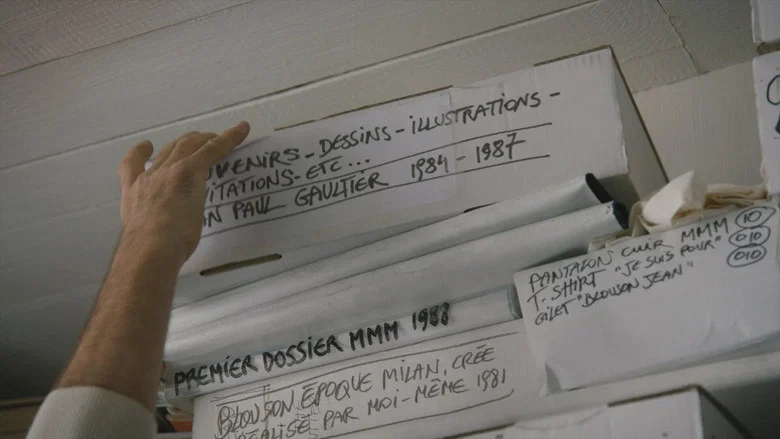 VENIRS - DESSINS - ILLUSTRATIONS -
ITATIONS - ETC...
N PAUL GAULTIER 1984 - 1987
PREMIER DOSSIER MMM 1988
BLOUSON ÉPOQUE MILAN, CRÉE
RÉALISÉ PAR MOI-MÊME 1981
PANTALON CUIR MMM 10
T-SHIRT "JE SUIS POUR" 010
GILET "BLOUSON JEAN" 010